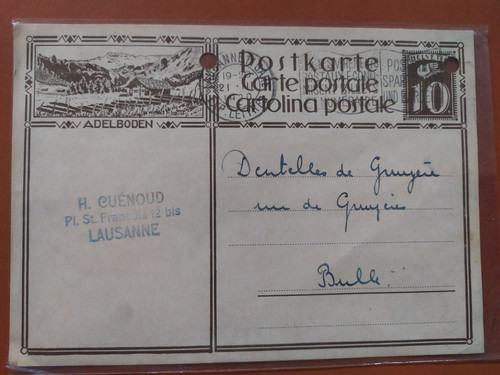 Postkarte
Carte postale
Cartolina postale
10
ADELBODEN
H. GUÉNOUD
Pl. St. François 12 bis
LAUSANNE
Dentelles de Gruyère
rue de Gruyères
Bulle